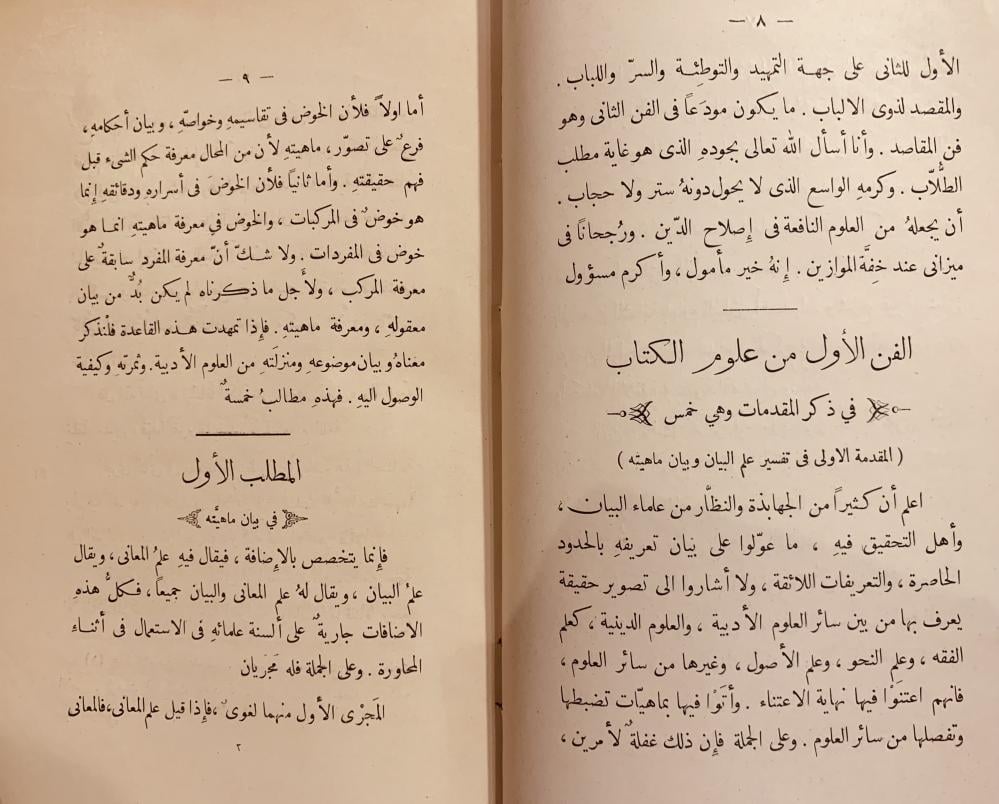 — ٨ —
الأول للثانى على جهة التمهيد والتوطئة والسرّ واللباب .
والمقصد لذوى الالباب . ما يكون مودَعاً فى الفن الثانى وهو
فن المقاصد . وأنا أسأل الله تعالى بجودهِ الذى هو غاية مطلب
الطُّلّاب . وكرمهِ الواسع الذى لا يحول دونهُ ستر ولا حجاب .
أن يجعلهُ من العلوم النافعة فى إصلاح الدّين . ورُجحانًا فى
ميزانى عند خِفَّة الموازين . إنهُ خير مأمول ، وأكرم مسؤول
الفن الأول من علوم الكتاب
في ذكر المقدمات وهي خمس
( المقدمة الاولى فى تفسير علم البيان وبيان ماهيته )
اعلم أن كثيراً من الجهابذة والنظّار من علماء البيان ،
وأهل التحقيق فيهِ ، ما عوّلوا على بيان تعريفهِ بالحدود
الحاصرة ، والتعريفات اللائقة ، ولا أشاروا الى تصوير حقيقة
يعرف بها من بين سائر العلوم الأدبية ، والعلوم الدينية ، كعلم
الفقه ، وعلم النحو ، وعلم الأصول ، وغيرها من سائر العلوم ،
فانهم اعتنَوْا فيها نهاية الاعتناء . وأتَوْا فيها بماهيّات تضبطها
وتفصلها من سائر العلوم . وعلى الجملة فإن ذلك غفلةٌ لأمرين ،
— ٩ —
أما اولاً فلأن الخوض فى تقاسيمهِ وخواصّهِ ، وبيان أحكامهِ ،
فرعٌ على تصوّر ، ماهيتهِ لأن من المحال معرفة حكم الشىء قبل
فهم حقيقتهِ . وأما ثانياً فلأن الخوض فى أسرارهِ ودقائقهِ إنما
هو خوضٌ فى المركبات ، والخوض في معرفة ماهيتهِ انما هو
خوض فى المفردات . ولا شكّ أنّ معرفة المفرد سابقةٌ على
معرفة المركب ، ولأجل ما ذكرناه لم يكن بُدٌّ من بيان
معقولهِ ، ومعرفة ماهيتهِ . فإذا تمهدت هذه القاعدة فلْنذكر
معناهُ وبيان موضوعه ومنزلَته من العلوم الأدبية . وثمرتهِ وكيفية
الوصول اليهِ . فهذهِ مطالبُ خمسةٌ
المطلب الأول
في بيان ماهيَّته
فإنما يتخصص بالإضافة ، فيقال فيهِ علمُ المعانى ، ويقال
علمُ البيان ، ويقال لهُ علم المعانى والبيان جميعاً ، فكلُّ هذهِ
الاضافات جاريةٌ على ألسنة علمائهِ فى الاستعمال فى أثناء
المحاورة . وعلى الجملة فله مَجرَيان
المَجرْى الأول منهما لغوىٌّ ، فإذا قيل علم المعانى ، فالمعانى
٢